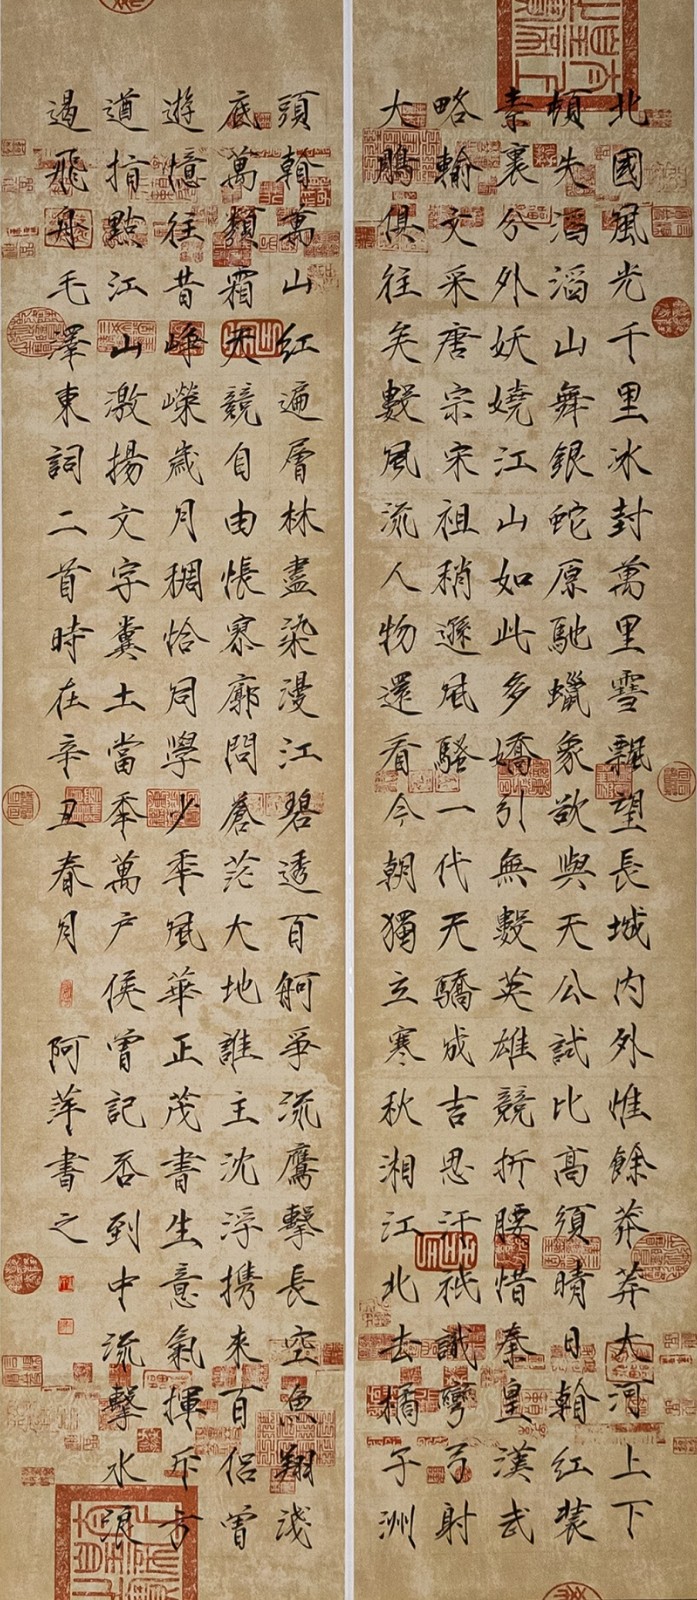 北國風光千里冰封萬里雪飄望長城内外惟餘莽莽大河上下
頓失滔滔山舞銀蛇原馳蠟象欲與天公試比高須晴日翰紅裝
素裹分外妖嬈江山如此多嬌引無數英雄競折腰惜秦皇漢武
略輸文采唐宗宋祖稍遜風騷一代天驕成吉思汗祇識彎弓射
大鵰俱往矣數風流人物還看今朝獨立寒秋湘江北去橘子洲
頭翰萬山紅遍層林盡染漫江碧透百舸爭流鷹擊長空魚翔淺
底萬類霜天競自由悵寥廓問蒼茫大地誰主沈浮携來百侶曾
遊憶往昔崢嶸歲月稠恰同學少秊風華正茂書生意氣揮斥方
遒指點江山激揚文字糞土當秊萬戶侯曾記否到中流擊水浪
遏飛舟毛澤東詞二首時在辛丑春月 阿萍書之